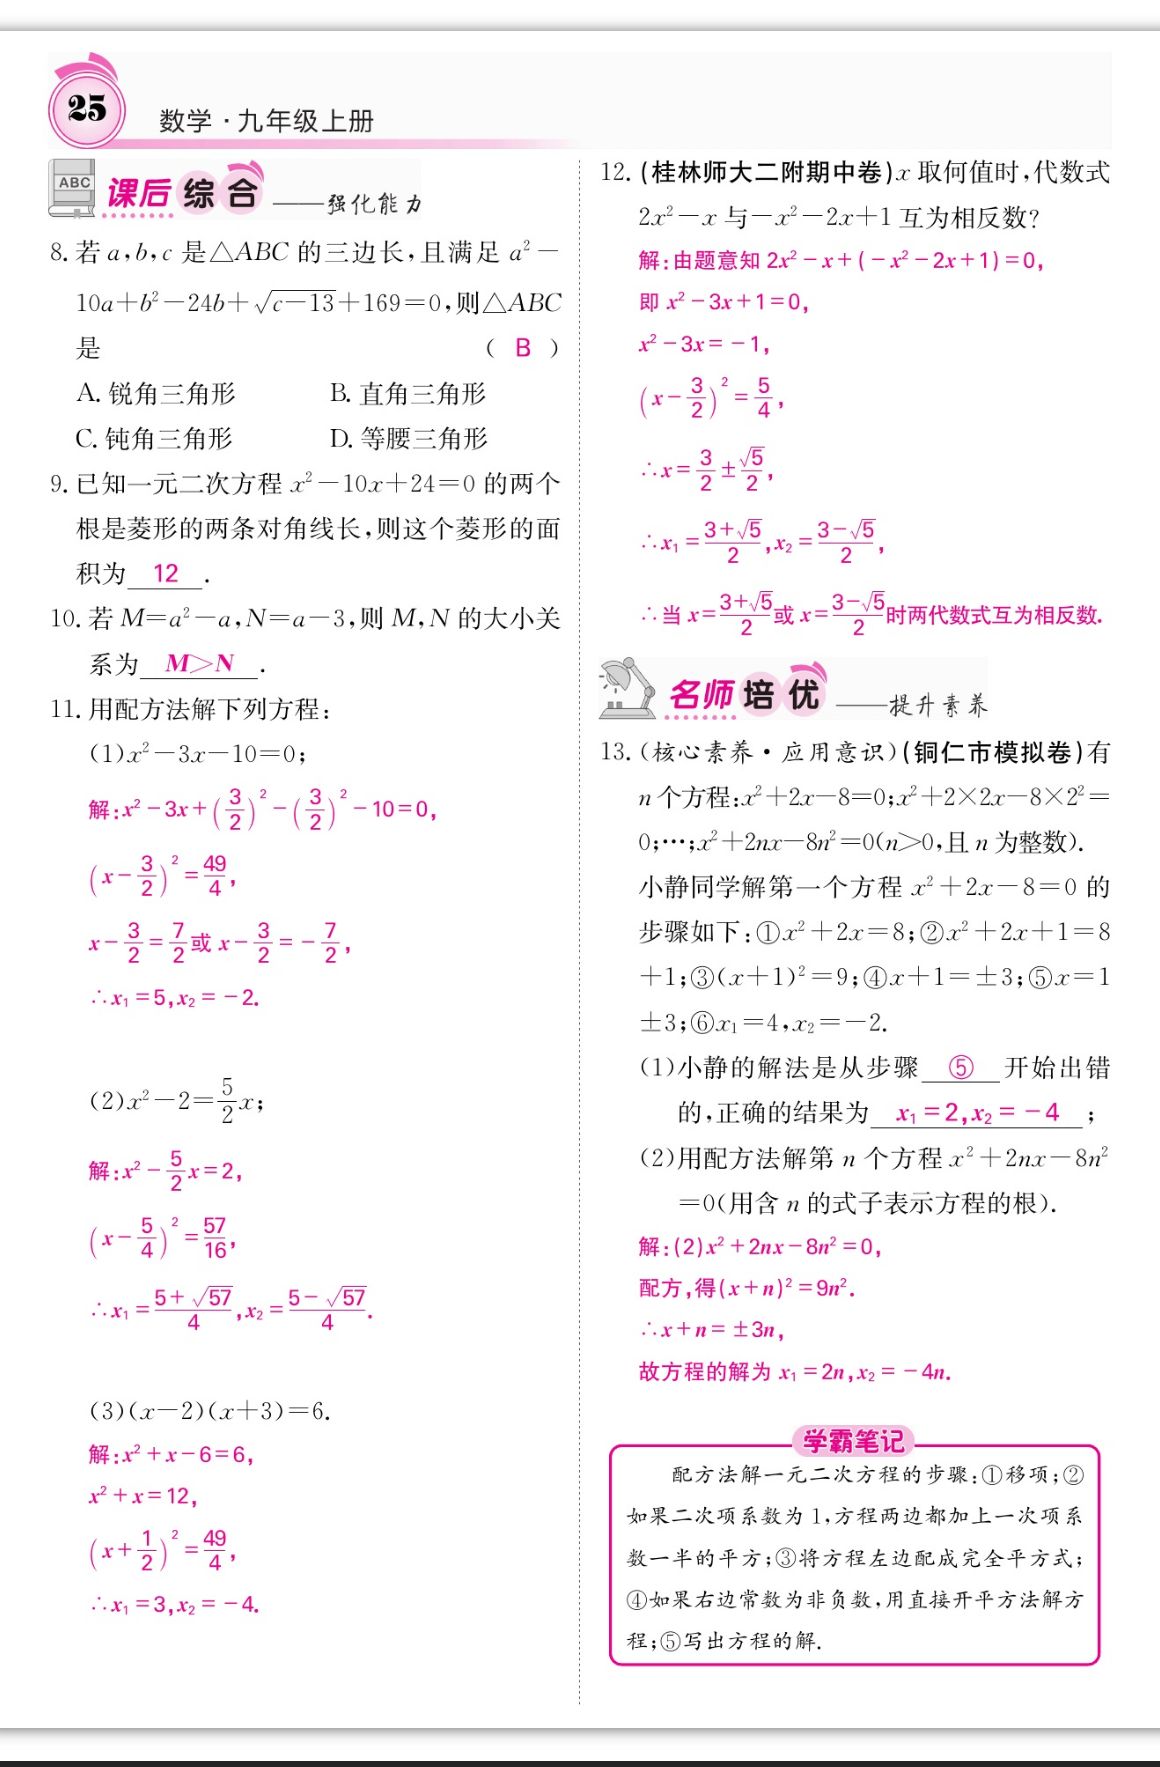 25
数学·九年级上册
ABC
课后综合——强化能力
8. 若 a,b,c 是△ABC 的三边长,且满足 a²－
10a＋b²－24b＋√(c－13)＋169＝0,则△ABC
是 ( B )
A. 锐角三角形 B. 直角三角形
C. 钝角三角形 D. 等腰三角形
9. 已知一元二次方程 x²－10x＋24＝0 的两个
根是菱形的两条对角线长,则这个菱形的面
积为 12 .
10. 若 M＝a²－a,N＝a－3,则 M,N 的大小关
系为 M＞N .
11. 用配方法解下列方程:
(1)x²－3x－10＝0;
解:x²－3x＋(3/2)²－(3/2)²－10＝0,
(x－3/2)²＝49/4,
x－3/2＝7/2或 x－3/2＝－7/2,
∴x₁＝5,x₂＝－2.
(2)x²－2＝5/2x;
解:x²－5/2x＝2,
(x－5/4)²＝57/16,
∴x₁＝(5＋√57)/4,x₂＝(5－√57)/4.
(3)(x－2)(x＋3)＝6.
解:x²＋x－6＝6,
x²＋x＝12,
(x＋1/2)²＝49/4,
∴x₁＝3,x₂＝－4.
12. (桂林师大二附期中卷)x 取何值时,代数式
2x²－x 与－x²－2x＋1 互为相反数?
解:由题意知 2x²－x＋(－x²－2x＋1)＝0,
即 x²－3x＋1＝0,
x²－3x＝－1,
(x－3/2)²＝5/4,
∴x＝3/2±√5/2,
∴x₁＝(3＋√5)/2,x₂＝(3－√5)/2,
∴当 x＝(3＋√5)/2或 x＝(3－√5)/2时两代数式互为相反数.
名师培优——提升素养
13. (核心素养·应用意识)(铜仁市模拟卷)有
n 个方程:x²＋2x－8＝0;x²＋2×2x－8×2²＝
0;…;x²＋2nx－8n²＝0(n＞0,且 n 为整数).
小静同学解第一个方程 x²＋2x－8＝0 的
步骤如下:①x²＋2x＝8;②x²＋2x＋1＝8
＋1;③(x＋1)²＝9;④x＋1＝±3;⑤x＝1
±3;⑥x₁＝4,x₂＝－2.
(1)小静的解法是从步骤 ⑤ 开始出错
的,正确的结果为 x₁＝2,x₂＝－4 ;
(2)用配方法解第 n 个方程 x²＋2nx－8n²
＝0(用含 n 的式子表示方程的根).
解:(2)x²＋2nx－8n²＝0,
配方,得(x＋n)²＝9n².
∴x＋n＝±3n,
故方程的解为 x₁＝2n,x₂＝－4n.
学霸笔记
配方法解一元二次方程的步骤:①移项;②
如果二次项系数为 1,方程两边都加上一次项系
数一半的平方;③将方程左边配成完全平方式;
④如果右边常数为非负数,用直接开平方法解方
程;⑤写出方程的解.